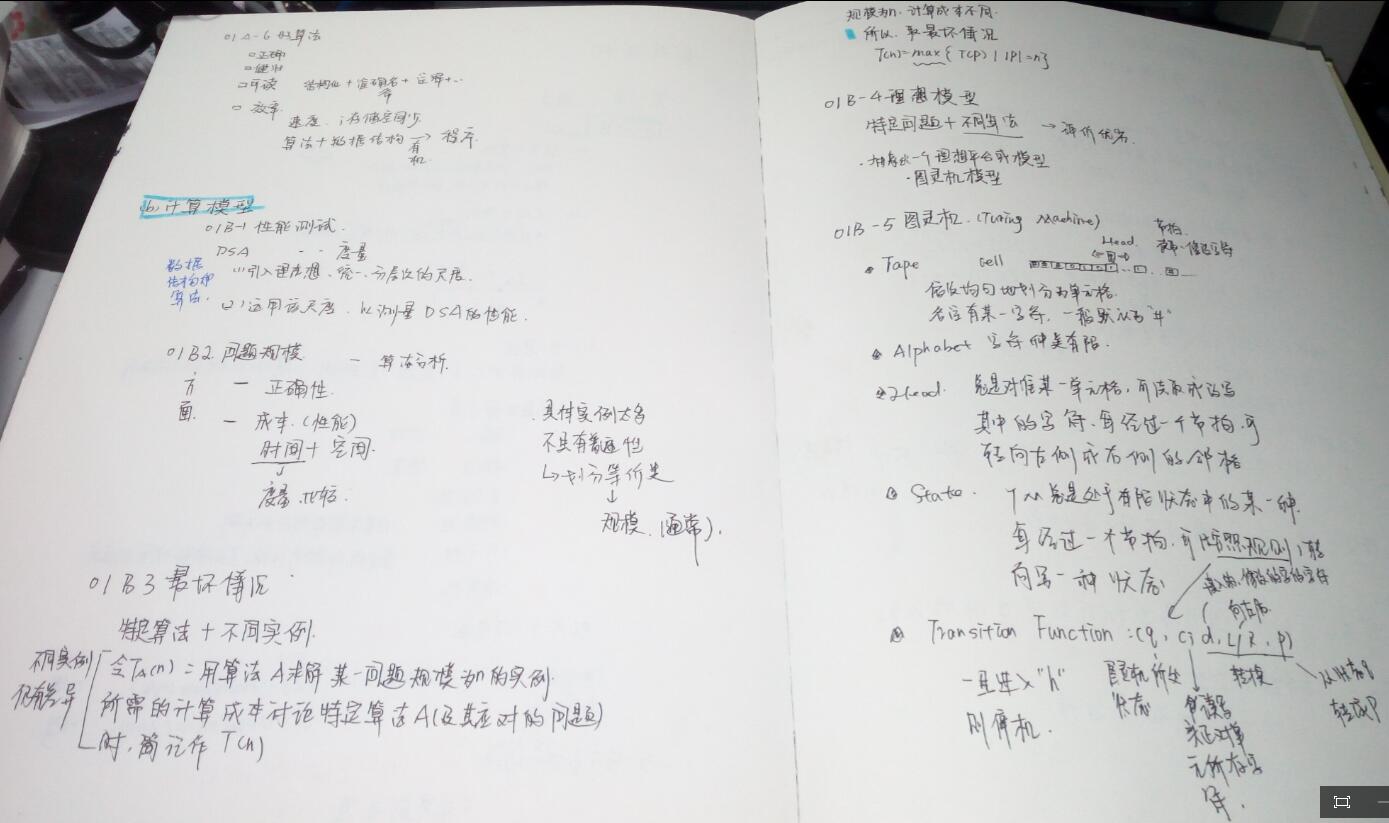 01A-6 好算法
正确
健壮
可读 结构化+准确命名+注释+...
效率
速度、存储空间少
算法+数据结构 → 程序
有机
(b) 计算模型
01B-1 性能测试
DSA -- 度量
数据结构和算法
(1)引入理想、统一、分层次的尺度.
(2)运用该尺度、以测量DSA的性能.
01B2. 问题规模 — 算法分析.
方面
— 正确性.
— 成本.(性能)
时间+空间.
↓
度量.比较.
具体实例太多
不具有普遍性
↳划分等价类
↓
规模.(通常).
01B3 最坏情况
特定算法+不同实例.
不同实例仍有差异
令TA(n)=用算法A求解某一问题规模为n的实例.
所需的计算成本讨论特定算法A(及其应对的问题)
时,简记作T(n)
规模为n,计算成本不同.
所以、取最坏情况
T(n)=max{T(P) | |P|=n}
01B-4理想模型
特定问题+不同算法 → 评价优劣.
·抽象出一个理想平台或模型
·图灵机模型
01B-5 图灵机.(Turing Machine)
节拍.
Head
Tape cell
依次均匀地划分为单元格.
各注有某一字符,一般默认为"#"
Alphabet 字符种类有限.
Head. 总是对准某一单元格,可读取或改写
其中的字符.每经过一个节拍,可
转向左侧或右侧的邻格
State. TM总是处于有限状态中的某一种.
每经过一个节拍.可依照规则,转
向另一种状态
向左右
Transition Function:(q, c; d, L/R, p)
一旦进入"h"
则停机.
图灵机所处状态
转换
从状态q
转成P